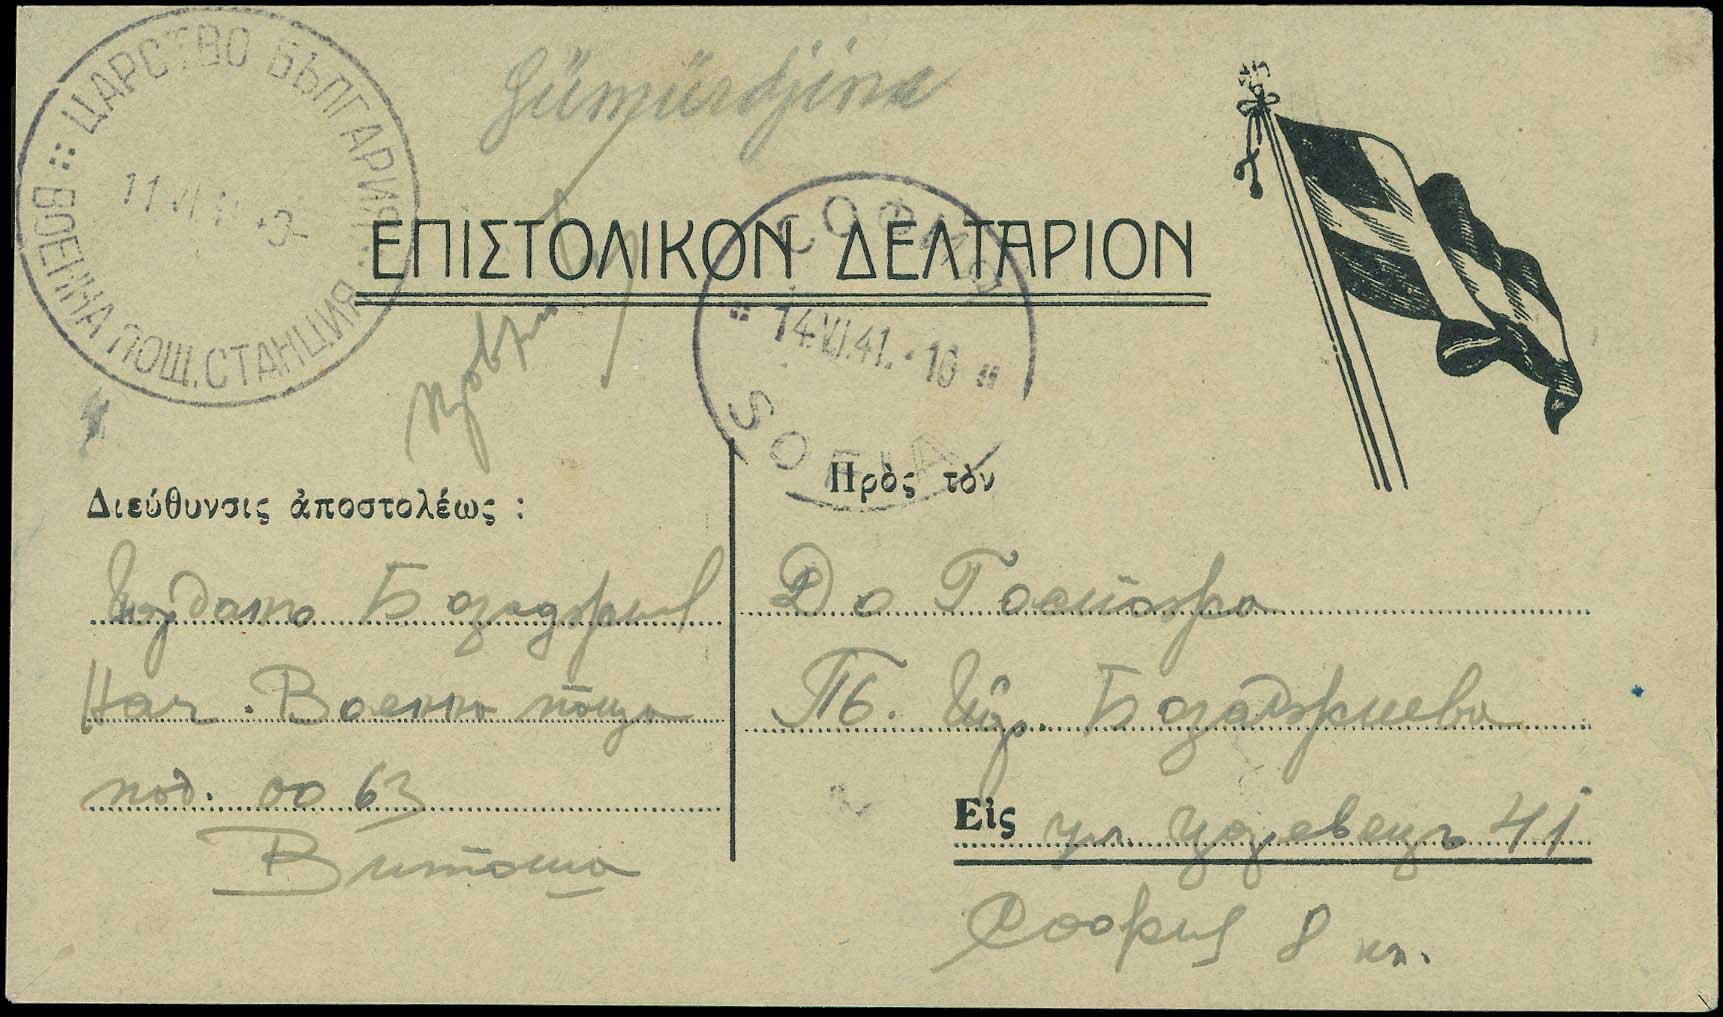 ЦАРСТВО БЪЛГАРИЯ
11.VI.41
ВОЕННА ПОЩ. СТАНЦИЯ
Gümürdjina
ΕΠΙΣΤΟΛΙΚΟΝ ΔΕΛΤΑΡΙΟΝ
СОФИЯ
14.VI.41.-10
SOFIA
Διεύθυνσις ἀποστολέως :
Йордано Бояджиев
Нач. Военна поща
под. 00 63
Витоша
Πρὸς τὸν
До Госпожа
Бояджиева
Εἰς ул. 41
София 8 п.